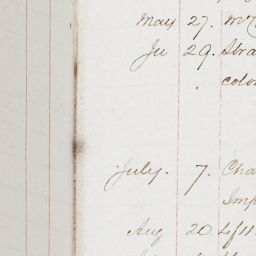 May 27. Mr
Je 29. Abra
colo
July. 7. Cha
Imp
Aug 20